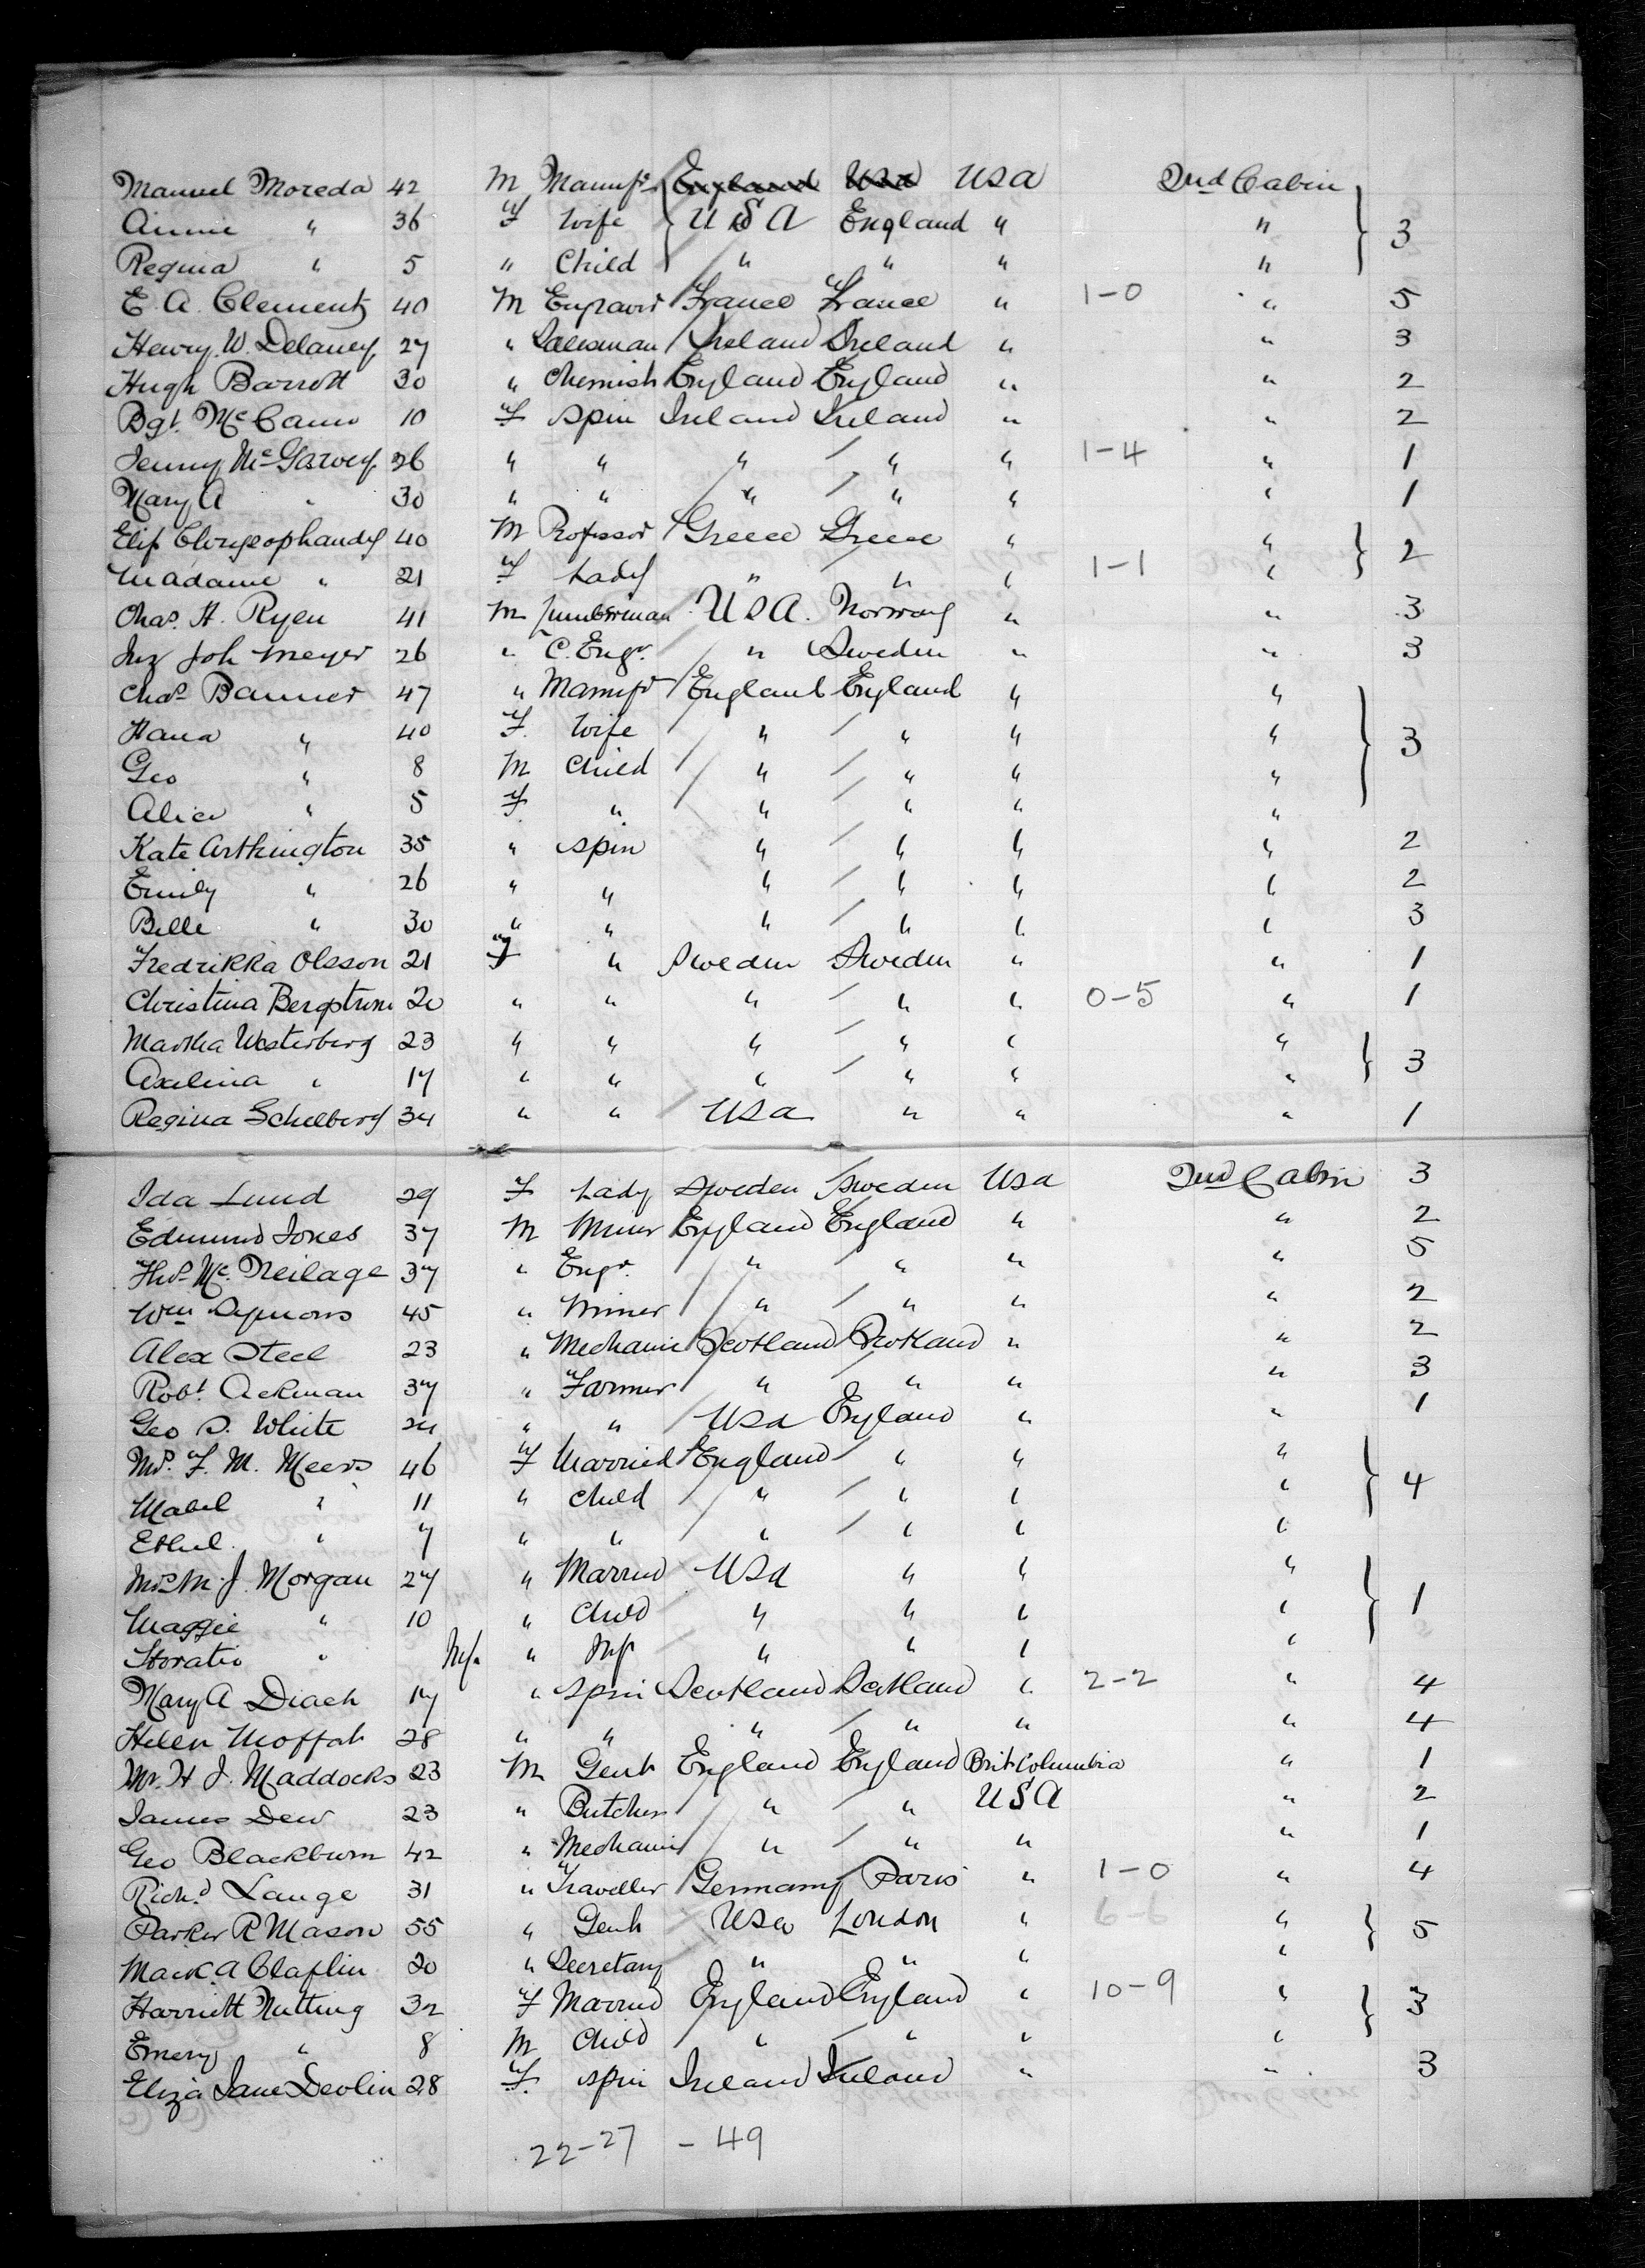 Manuel Moreda 42 M Manufr England USA USA 2nd Cabin
Annie " 36 F Wife USA England " " 3
Regina " 5 " Child " " " "
E. A. Clementz 40 M Engraver France France " 1-0 " 5
Henry W. Delaney 27 " Salesman Ireland Ireland " " 3
Hugh Barrott 30 " Chemist England England " " 2
Bgt. McCann 10 F spin Ireland Ireland " " 2
Jenny McGarvey 26 " " " " " 1-4 " 1
Mary A " 30 " " " " " " 1
40 M Professor Greece Greece " "
Madame " 21 F Lady " " " 1-1 " 2
Chas. H. Ryen 41 M Lumberman USA. Norway " " 3
Joh Meyer 26 " C. Engr. " Sweden " " 3
Chas Banner 47 " Manufr England England " "
Hana " 40 F. Wife " " " " 3
Geo " 8 M Child " " " "
Alice " 5 F. " " " " "
Kate Arthington 35 " spin " " " " 2
Emily " 26 " " " " " " 2
Belle " 30 " " " " " " 3
Fredrikka Olsson 21 F " Sweden Sweden " " 1
Christina Bergstrom 20 " " " " " 0-5 " 1
Martha Westerberg 23 " " " " " "
Axelina " 17 " " " " " " 3
Regina Schelberg 34 " " USA " " " 1
Ida Lund 29 F Lady Sweden Sweden USA 2nd Cabin 3
Edmund Jones 37 M Miner England England " " 2
Thos. Mc.Neilage 37 " Engr. " " " " 5
Wm Symons 45 " Miner " " " " 2
Alex Steel 23 " Mechanic Scotland Scotland " " 2
Robt Ackman 37 " Farmer " " " " 3
Geo S. White 24 " " USA England " " 1
Mrs. F. M. Meers 46 F Married England " " "
Mabel " 11 " Child " " " " 4
Ethel " 7 " " " " " "
Mrs M. J. Morgan 27 " Married USA " " "
Maggie " 10 " Child " " " " 1
Horatio " Inf. " Inf " " " "
Mary A Diack 17 " Spin Scotland Scotland " 2-2 " 4
Helen Moffat 28 " " " " " " 4
Mr. H J. Maddocks 23 M Gent England England Brit Columbia " 1
James Dew 23 " Butcher " " USA " 2
Geo Blackburn 42 " Mechanic " " " " 1
Richd Lange 31 " Traveller Germany Paris " 1-0 " 4
Parker R Mason 55 " Gent USA London " 6-6 " 5
Mark. A Claflin 20 " Secretary " " " "
Harriett Nutting 32 F Married England England " 10-9 " 3
Emery " 8 M Child " " " "
Eliza Jane Devlin 28 F. spin Ireland Ireland " " 3
22-27 - 49